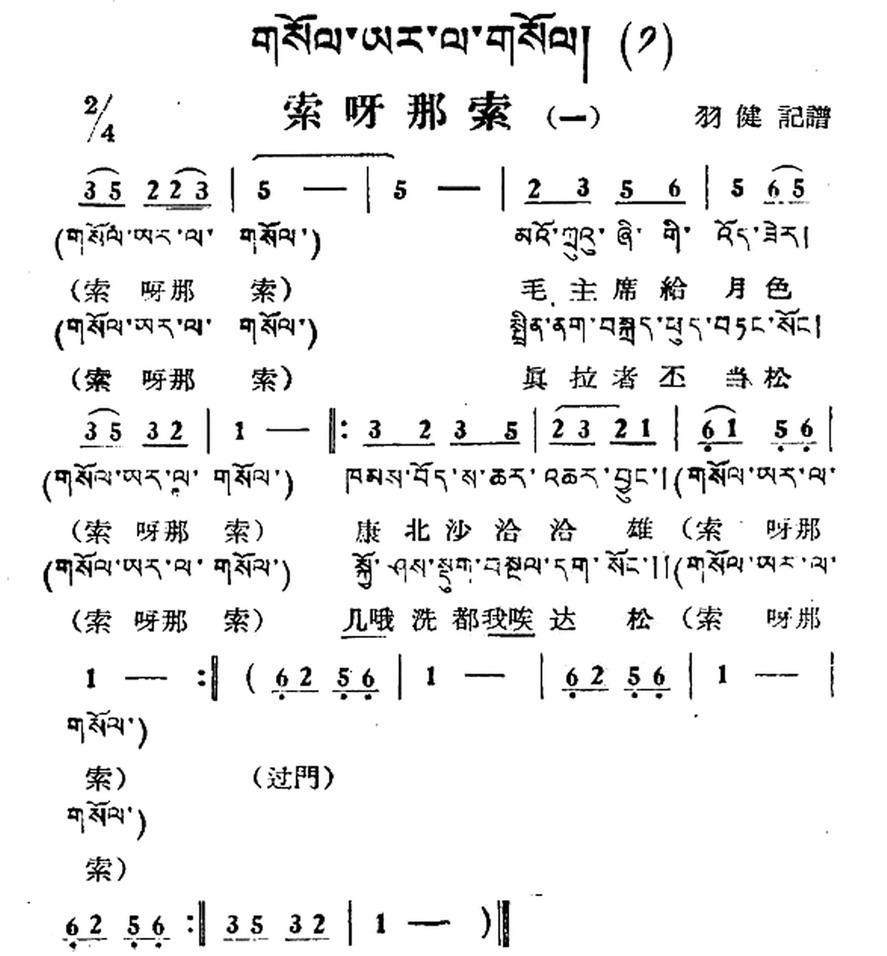 གསོལ་ཡར་ལ་གསོལ། (༡)
2/4 索呀那索 (一) 羽健記譜
3 5 2 2 3 | 5 — | 5 — | 2 3 5 6 | 5 6 5
(གསོལ་ཡར་ལ་ གསོལ་) མའོ་ཀྲུའུ་ཞི་ གི་ འོད་ཟེར།
(索 呀那 索) 毛主席給 月色
(གསོལ་ཡར་ལ་ གསོལ་) སྤྲིན་ནག་བསྐྲད་ཕུད་བཏང་སོང་།
(索 呀那 索) 眞拉者丕 当松
3 5 3 2 | 1 — ‖: 3 2 3 5 | 2 3 2 1 | 6 1 5 6 |
(གསོལ་ཡར་ལ་ གསོལ་) ཁམས་བོད་ས་ཆར་ འཆར་བྱུང་། (གསོལ་ཡར་ལ་
(索 呀那 索) 康北沙洽洽 雄 (索 呀那
(གསོལ་ཡར་ལ་ གསོལ་) སྐྱོ་ཤས་སྡུག་བསྔལ་དག་ སོང་།། (གསོལ་ཡར་ལ་
(索 呀那 索) 几哦洗都我唉达 松 (索 呀那
1 — :‖ ( 6 2 5 6 | 1 — | 6 2 5 6 | 1 — |
གསོལ་)
索) (过門)
གསོལ་)
索)
6 2 5 6 :‖ 3 5 3 2 | 1 — )‖